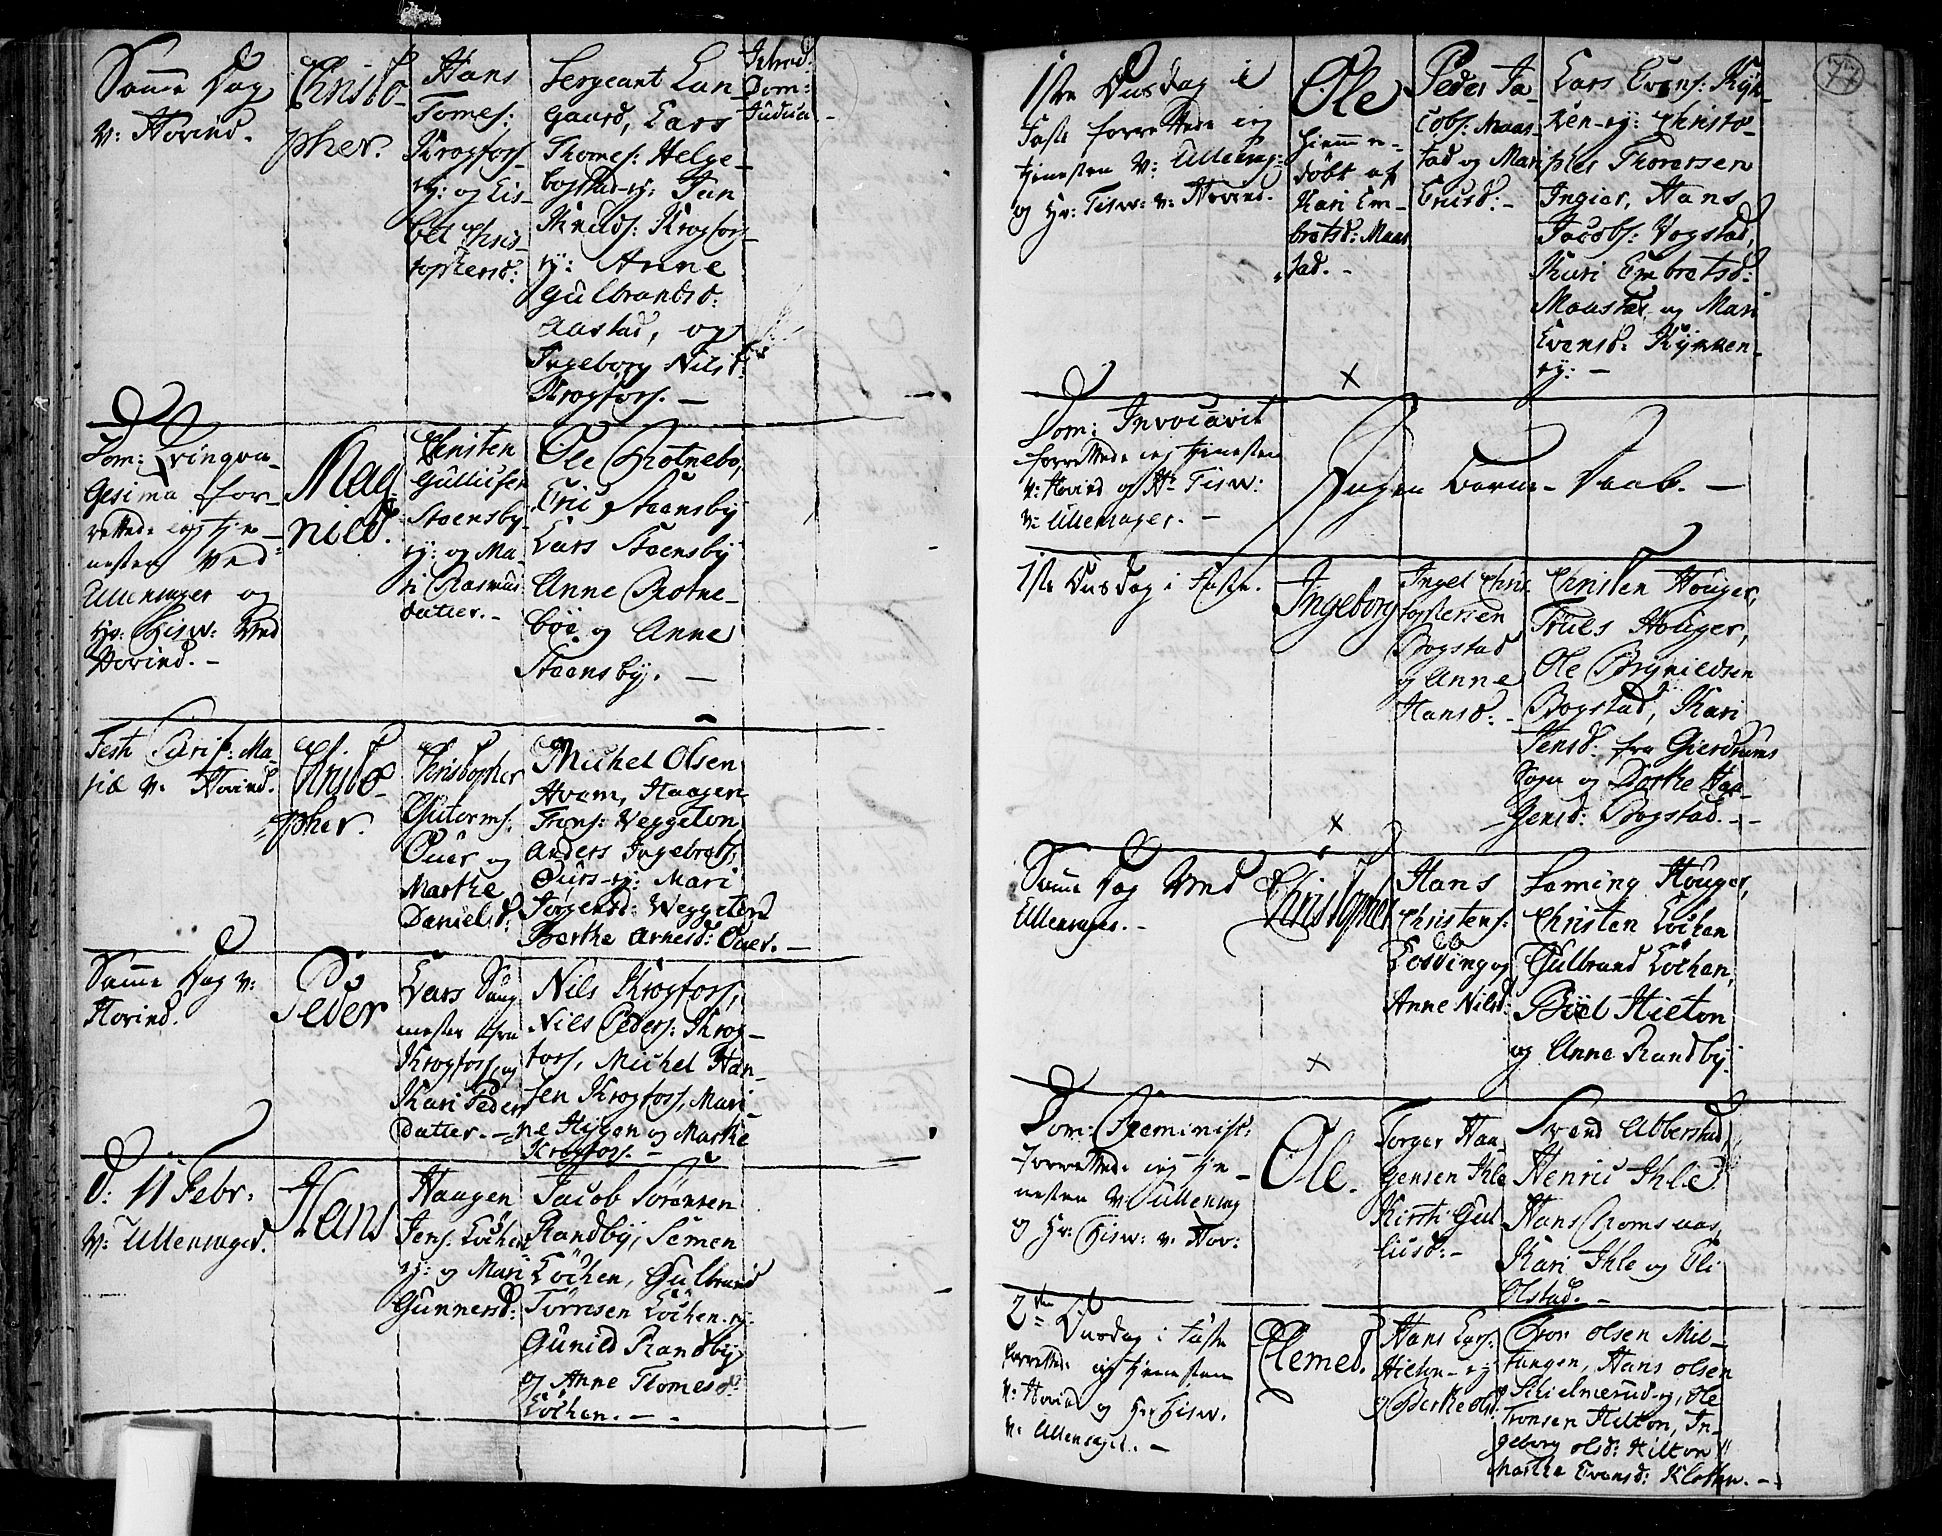 Same Dag
v: Hovind.
Christo-
pher.
Hans
Tomes:
Krogfors-
ey: og Lis-
bet Chris-
tophersd:
Sergeant Lun-
gaard, Lars
Thomes: Helge-
bogstad-ey: Jan
Knuds: Krogfors-
ey: Anne
Gulbrandsd:
Aastad, og
Ingeborg Nilsd:
Krogfors. -
Introd:
Dom:
Dom: Qvinqva-
gesima for-
rettede ieg tje-
nesten ved
Ullensager og
Hr: Tisw: ved
Hovind. -
Mag-
nild.
Christen
Gulliksen
Staensby-
ey: og Ma-
ri Rasmus-
datter. -
Ole Rotnebø,
Eric Staensby
Lars Staensby
Anne Rotne-
böe og Anne
Staensby. -
Festo Purif: Ma-
riæ v: Hovind.
Christo-
pher.
Christopher
Gutorms:
Ouer og
Marthe
Danielsd:
Michel Olsen
Hvam, Haagen
Trons: Veggeton,
Anders Ingebrets:
Ouers-ey: Mari
Jørgensd: Veggeton
Berthe Arnesd: Ouer. -
Same Dag v:
Hovind.
Peder
Lars Saug
mester fra
Krogfors, og
Kari Peder
datter. -
Nils Krogfors,
Nils Peders: Krog-
fors, Michel Han-
sen Krogfors, Mari-
ne Hygen og Marthe
Krogfors. -
d: 11 Febr:
v: Ullensager.
Hans
Haagen
Jens: Løchen
ey: og Mari
Gunnersd:
Jacob Sørensen
Randby, Semen
Löchen, Gulbrand
Torresen Löchen-ey:
Gunild Randby,
og Anne Tomesd:
Löchen. -
77
1ste Onsdag i
Faste forrettede ieg
tjenesten v: Ullensag:
og Hr: Tisw: v: Hovind.
Ole
hjemme-
døbt af
Kari Em-
bretsd: Maas
tad. -
Peder Ja-
cobs: Maas-
tad og Mari
Trulsd: -
Lars Evens: Kyk-
ken-ey: Christo-
pher Thoresen
Ingier, Hans
Jacobs: Vogstad,
Kari Embretsd:
Maastad og Mari
Evensd: Kykken-
ey: -
Dom: Invocavit
forrettede ieg tjenesten
v: Hovind og Hr Tisw:
v: Ullensager. -
Ingen Barne-Daab. -
1ste Onsdag i Faste.
Ingeborg
Ingel Chris
tophersen
Bogstad
og Anne
Hansd: -
Christen Houger,
Truls Houger,
Ole Brynildsen
Bogstad, Kari
Jensd: fra Gierdrums
Sogn og Dorthe Haa-
gensd: Bogstad. -
Same Dag ved
Ullensager. -
Christopher
Hans
Christens:
og
Anne Nilsd:
Faming Houger,
Christen Löchen
Gulbrand Löchen,
Hilton
og Anne Randby.
Dom: Reminisc:
forrettede ieg tje-
nesten v: Ullensag
og Hr: Tisw: v: Hov:
Ole.
Torger Haa
gensen Ihle
Kirsti Gul
liusd: -
Svend Abberstad,
Henric Ihle
Hans Romsaas,
Kari Ihle og Eli
Olstad. -
2den Onsdag i Faste
forrettede ieg tjenesten
v: Hovind og Hr Tisw.
v: Ullensager. -
Clemed.
Hans Lars:
Hilton-ey:
og Berthe Olsd:
Tron Olsen Mel-
tangen, Hans Olsen
Skielmerud-ey, Ole
Tronsen Hilton, In-
geborg Olsd: Hilton
Marthe Evensd: Kløften. -